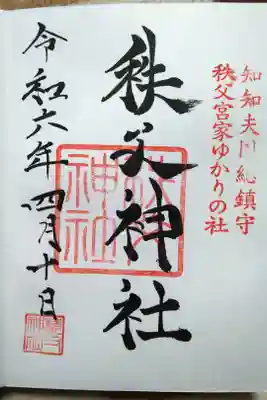 知知夫国総鎮守
秩父宮家ゆかりの社
秩父神社
秩父神社
令和六年四月十日